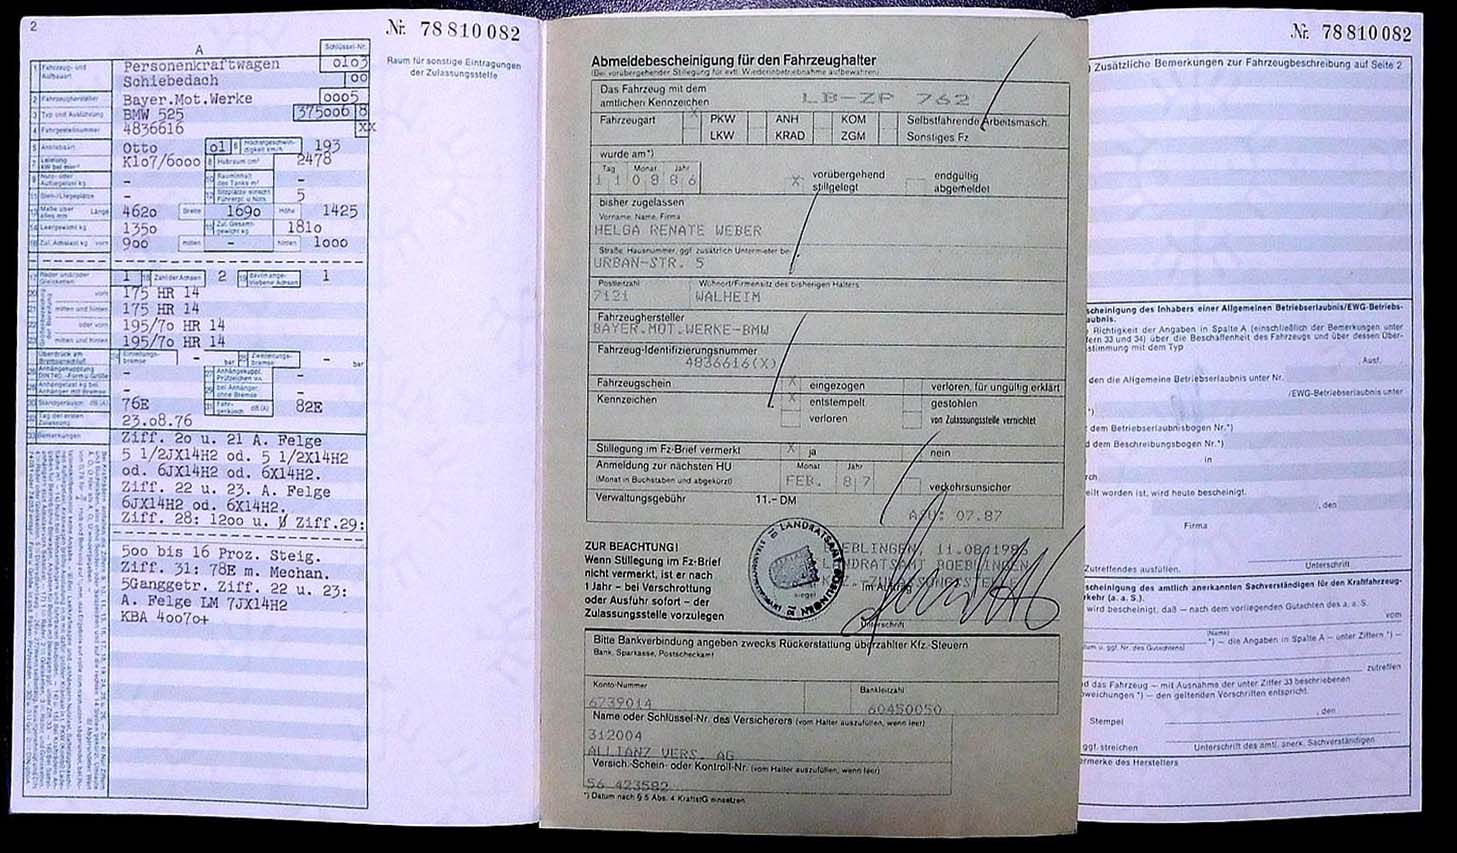 2
Nr. 78810082
Raum für sonstige Eintragungen
der Zulassungsstelle
A
Schlüssel-Nr.
1 Fahrzeug- und Aufbauart Personenkraftwagen o1o3
Schiebedach oo
2 Fahrzeughersteller Bayer.Mot.Werke ooo5
3 Typ und Ausführung BMW 525 375oo6 8
4 Fahrgestellnummer 4836616 XX
5 Antriebsart Otto o1 6 Höchstgeschwindigkeit km/h 193
7 Leistung K1o7/6ooo 8 Hubraum cm³ 2478
9 Nutz- oder Aufliegelast kg – 10 Rauminhalt des Tanks m³ –
11 Steh-/Liegeplätze – 12 5
13 Maße über alles mm Länge 462o Breite 169o Höhe 1425
14 Leergewicht kg 135o 15 Zul. Gesamtgewicht kg 181o
16 Zul. Achslast kg vorn 9oo mitten – hinten 1ooo
17 1 18 Zahl der Achsen 2 19 1
20 vorn 175 HR 14
21 mitten und hinten 175 HR 14
22 oder vorn 195/7o HR 14
23 mitten und hinten 195/7o HR 14
Überdruck am Bremsanschluß Einleitungsbremse – bar Zweileitungsbremse – bar
– –
– –
30 Standgeräusch dB (A) 76E 31 Fahrgeräusch dB (A) 82E
32 Tag der ersten Zulassung 23.o8.76
33 Bemerkungen
Ziff. 2o u. 21 A. Felge
5 1/2JX14H2 od. 5 1/2X14H2
od. 6JX14H2 od. 6X14H2.
Ziff. 22 u. 23. A. Felge
6JX14H2 od. 6X14H2.
Ziff. 28: 12oo u. Ziff.29:
5oo bis 16 Proz. Steig.
Ziff. 31: 78E m. Mechan.
5Ganggetr. Ziff. 22 u. 23:
A. Felge LM 7JX14H2
KBA 4oo7o+
Abmeldebescheinigung für den Fahrzeughalter
(Bei vorübergehender Stillegung für evtl. Wiederinbetriebnahme aufbewahren)
Das Fahrzeug mit dem
amtlichen Kennzeichen LB-ZP 762
Fahrzeugart X PKW ANH KOM Selbstfahrende Arbeitsmasch.
LKW KRAD ZGM Sonstiges Fz
wurde am*)
Tag Monat Jahr
1 1 0 8 8 6 X vorübergehend stillgelegt endgültig abgemeldet
bisher zugelassen
Vorname, Name, Firma
HELGA RENATE WEBER
Straße, Hausnummer, ggf. zusätzlich Untermieter bei
URBAN-STR. 5
Postleitzahl Wohnort/Firmensitz des bisherigen Halters
7121 WALHEIM
Fahrzeughersteller
BAYER.MOT.WERKE-BMW
Fahrzeug-Identifizierungsnummer
4836616(X)
Fahrzeugschein X eingezogen verloren, für ungültig erklärt
Kennzeichen X entstempelt gestohlen
verloren von Zulassungsstelle vernichtet
Stillegung im Fz-Brief vermerkt X ja nein
Anmeldung zur nächsten HU Monat Jahr
(Monat in Buchstaben und abgekürzt) FEB. 8 7 verkehrsunsicher
Verwaltungsgebühr 11.– DM
ASU: 07.87
ZUR BEACHTUNG!
Wenn Stillegung im Fz-Brief
nicht vermerkt, ist er nach
1 Jahr – bei Verschrottung
oder Ausfuhr sofort – der
Zulassungsstelle vorzulegen
LANDRATSAMT BÖBLINGEN
BOEBLINGEN, 11.08.1986
LANDRATSAMT BOEBLINGEN
KFZ.-ZULASSUNGSSTELLE
Im Auftrag
Unterschrift
Bitte Bankverbindung angeben zwecks Rückerstattung überzahlter Kfz.-Steuern
Bank, Sparkasse, Postscheckamt
Konto-Nummer Bankleitzahl
6739014 60450050
Name oder Schlüssel-Nr. des Versicherers (vom Halter auszufüllen, wenn leer)
312004
ALLIANZ VERS. AG
Versich.-Schein- oder Kontroll-Nr. (vom Halter auszufüllen, wenn leer)
56 423582
*) Datum nach § 5 Abs. 4 KraftStG einsetzen
Nr. 78810082
) Zusätzliche Bemerkungen zur Fahrzeugbeschreibung auf Seite 2
scheinigung des Inhabers einer Allgemeinen Betriebserlaubnis/EWG-Betriebs-
aubnis.
Richtigkeit der Angaben in Spalte A (einschließlich der Bemerkungen unter
fern 33 und 34) über die Beschaffenheit des Fahrzeugs und über dessen Über-
stimmung mit dem Typ
, Ausf.
den die Allgemeine Betriebserlaubnis unter Nr.
/EWG-Betriebserlaubnis unter
*)
dem Betriebserlaubnisbogen Nr.*)
d dem Beschreibungsbogen Nr.*)
in
rch
eilt worden ist, wird heute bescheinigt.
, den
Firma
Zutreffendes ausfüllen. Unterschrift
scheinigung des amtlich anerkannten Sachverständigen für den Kraftfahrzeug-
kehr (a. a. S.).
wird bescheinigt, daß – nach dem vorliegenden Gutachten des a. a. S.
vom
(Name)
*) – die Angaben in Spalte A – unter Ziffern *) –
tum u. ggf. Nr. des Gutachtens)
zutreffen
d das Fahrzeug – mit Ausnahme der unter Ziffer 33 beschriebenen
bweichungen *) – den geltenden Vorschriften entspricht.
, den
Stempel
ggf. streichen Unterschrift des amtl. anerk. Sachverständigen
ermerke des Herstellers